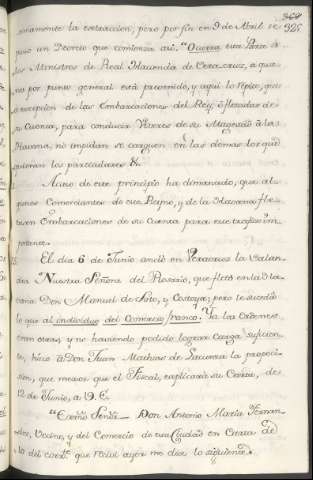 369
325
namente la extraccion, pero por fin en 9 de Abril se
puso un Decreto que comienza asi. "Ocurra esta Parte à
los Ministros de Real Hacienda de Veracruz, a que-
nes por punto general està prevenido, y aqui lo repito, que
à excepcion de las Embarcaciones del Rey, ò fletadas de
su Cuenta, para conducir Viveres de su Magestad à la
Havana, no impidan se carguen en las demas lo que
quieran los particulares &.
Acaso de este principio ha dimanado, que al-
gunos Comerciantes de este Reyno, y de la Havana fle-
ten Embarcaciones de su Cuenta para este trafico im-
portante.
El dia 6 de Junio ancló en Veracruz la Balan-
dra Nuestra Señora del Rosario, que fletó en la
Don Manuel de y pero le sucedio
lo que al individuo del Comercio franco. Ya las Ordenes
eran otras, y no haviendo podido lograr Carga suficien-
te, hizo à Don Juan Mathias de Lacunza la proposi-
cion, que mejor que el Fiscal, explicará su Carta, de
12 de Junio, a V. E.
"Exmô Señor = Don Antonio Maria Fernan-
dez, Vecino, y del Comercio de esta Ciudad en Carta de
6 del corrte. que recivi ayer me dice lo siguiente.